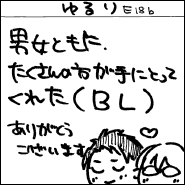 ゆるり E18b
男女ともに、
たくさんの方が手にとって
くれた(BL)
ありがとう
ございます